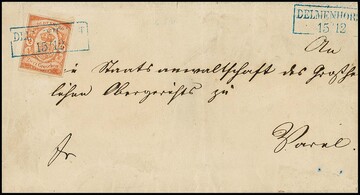 DELMENHORST
15/12
DELMENHORST
15/12
An
die Staatsanwaltschaft des Großhe
lichen Obergerichts zu
fr.
Varel.